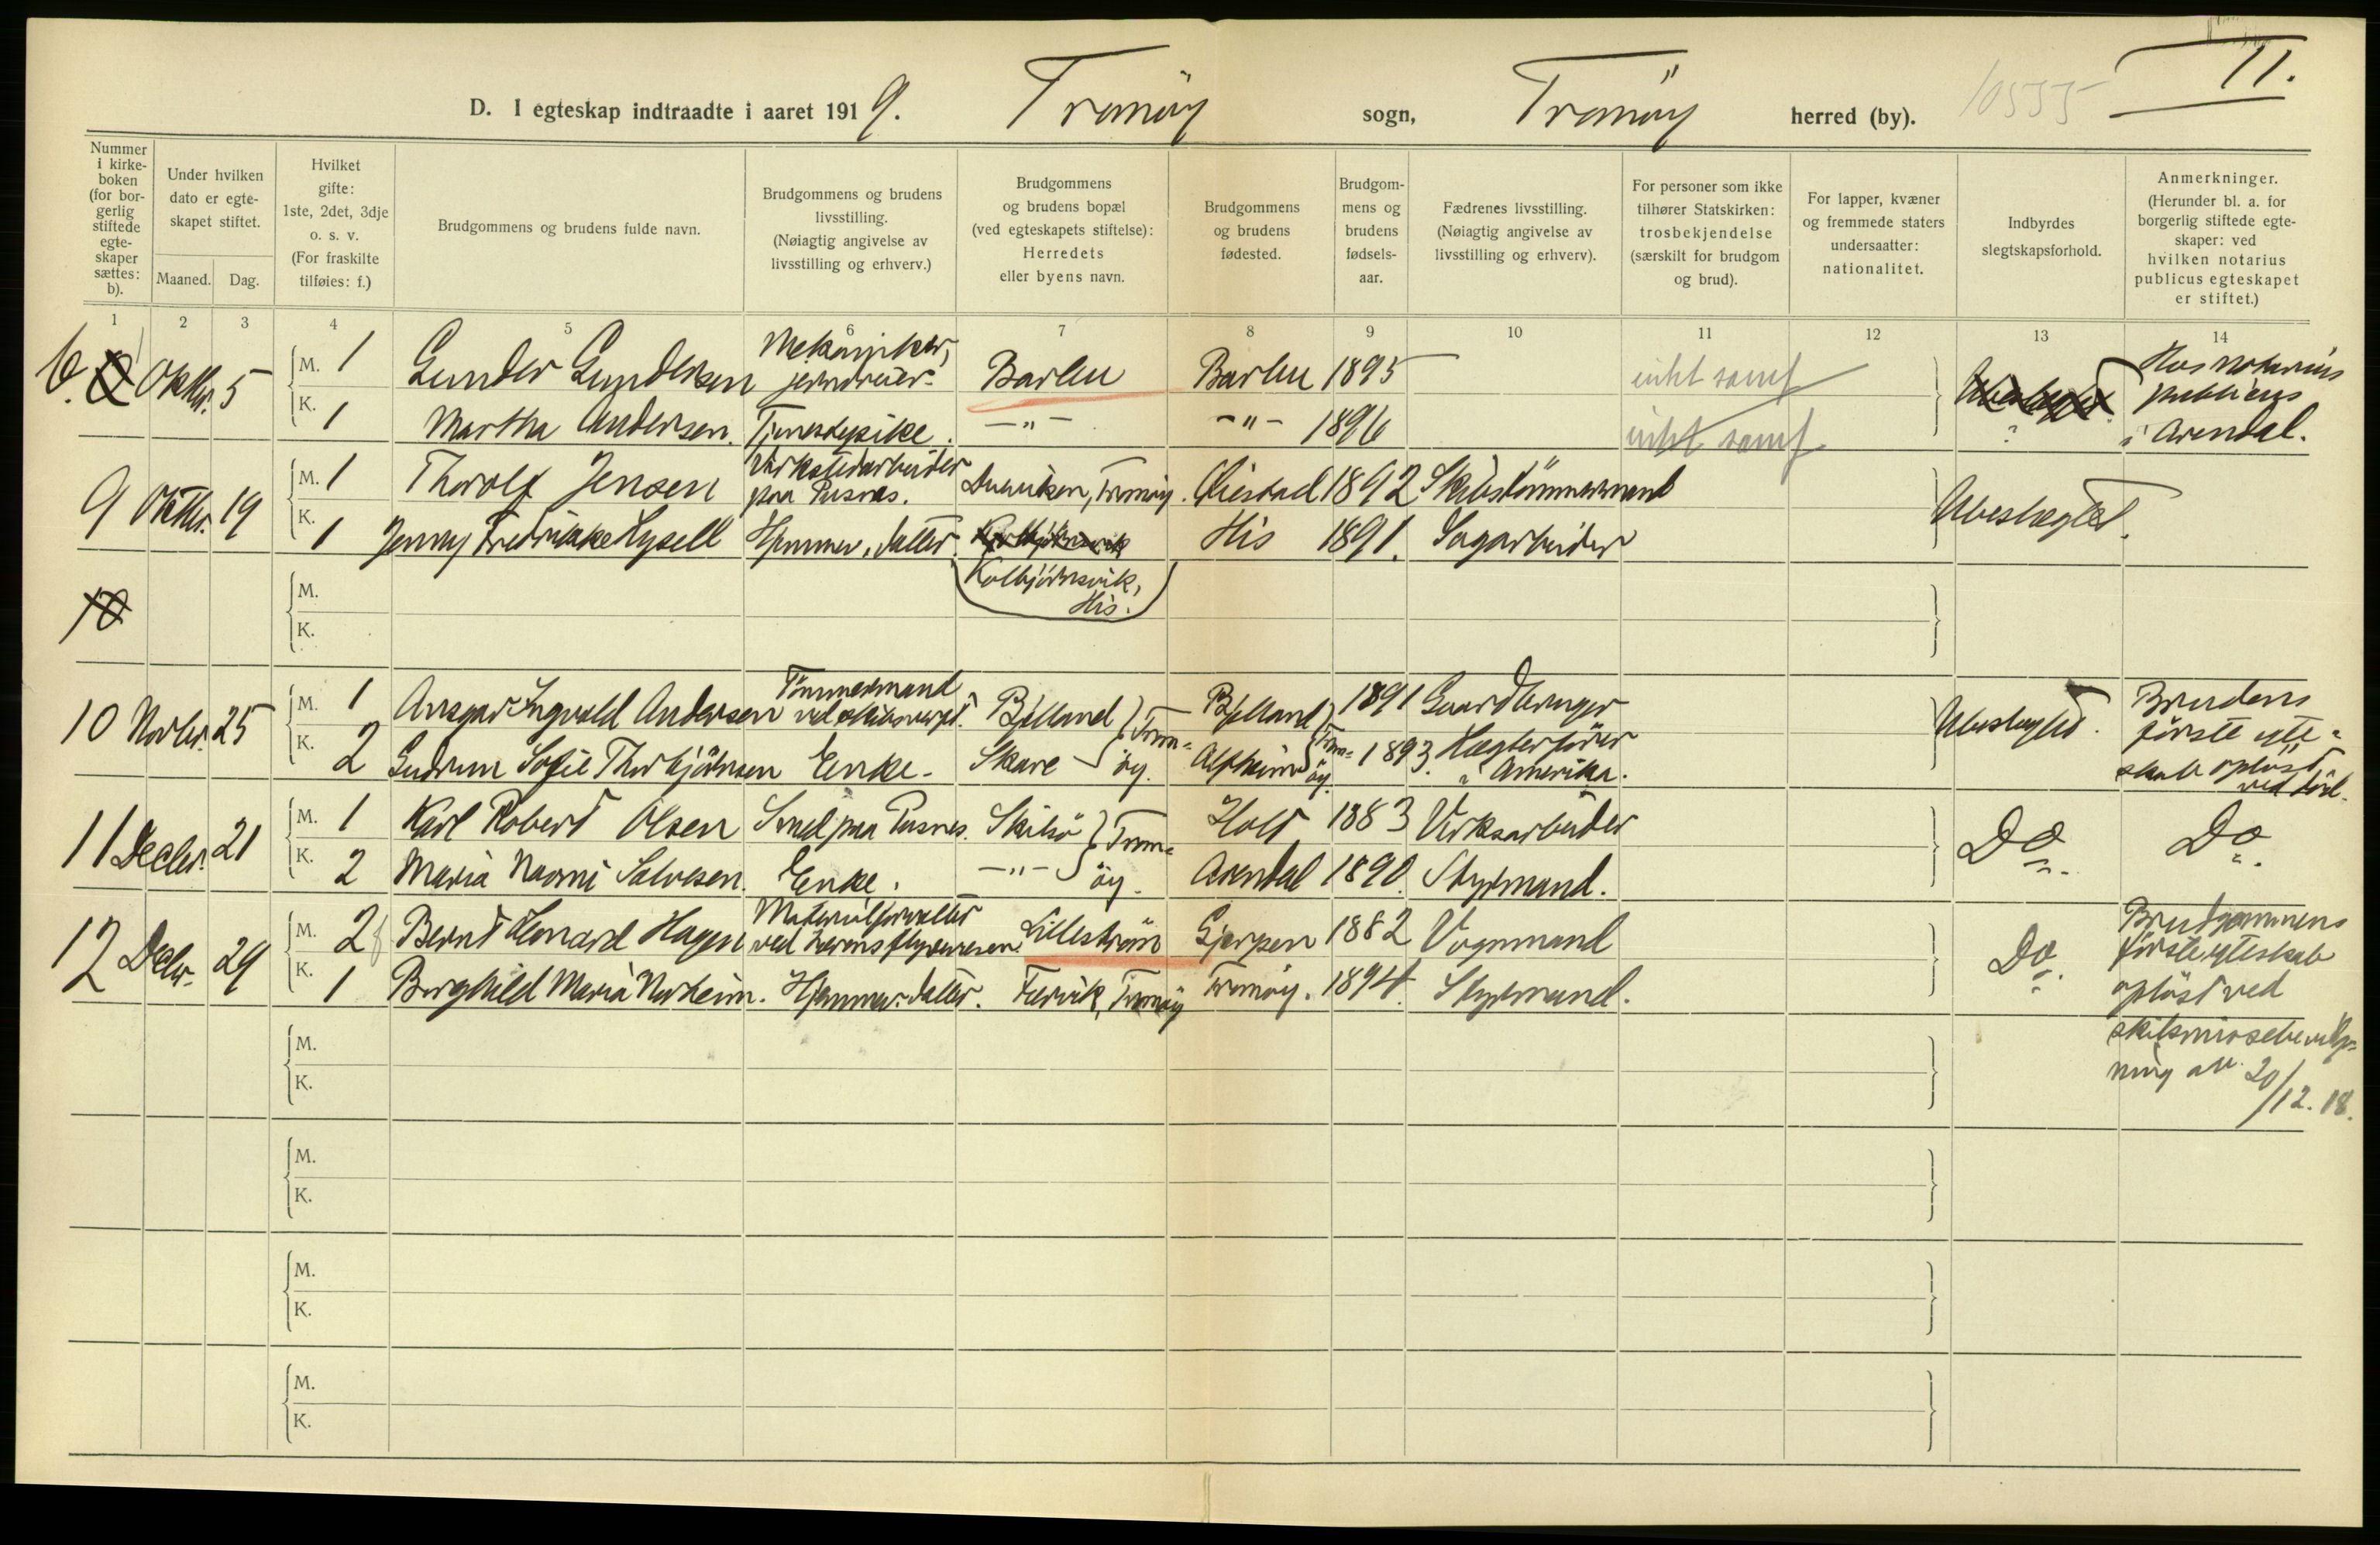 II.
D. I egteskap indtraadte i aaret 1919. Tromöy sogn, Tromöy herred (by). 10535
Nummer i kirkeboken (for borgerlig stiftede egteskaper sættes: b).
Under hvilken dato er egteskapet stiftet.
Maaned. Dag.
Hvilket gifte: 1ste, 2det, 3dje o. s. v. (For fraskilte tilføies: f.)
Brudgommens og brudens fulde navn.
Brudgommens og brudens livsstilling. (Nøiagtig angivelse av livsstilling og erhverv.)
Brudgommens og brudens bopæl (ved egteskapets stiftelse): Herredets eller byens navn.
Brudgommens og brudens fødested.
Brudgommens og brudens fødselsaar.
Fædrenes livsstilling. (Nøiagtig angivelse av livsstilling og erhverv).
For personer som ikke tilhører Statskirken: trosbekjendelse (særskilt for brudgom og brud).
For lapper, kvæner og fremmede staters undersaatter: nationalitet.
Indbyrdes slegtskapsforhold.
Anmerkninger. (Herunder bl. a. for borgerlig stiftede egteskaper: ved hvilken notarius publicus egteskapet er stiftet.)
1 2 3 4 5 6 7 8 9 10 11 12 13 14
b. Oktbr. 5 M. 1 Gunder Gundersen Mekaniker, jerndreier. Barbu Barbu 1895 Hos notarius
K. 1 Martha Andersen. Tjenestepike. -"- -"- 1896 publicus
i Arendal.
9 Oktbr. 19 M. 1 Thorolf Jensen Verkstedarbeider paa Pusnes. Tromöy. Öiestad 1892 Skibstömmermand Ubeslegtet.
K. 1 Jenny Fredrikke Hysell Hjemmev. datter. Kolbjörnsvik, His. His 1891. Sagarbeider
10
M.
K.
10 Novbr. 25 M. 1 Ansgar Ingvald Andersen Tömmermand ved skibsverft. Bjelland Tromöy. Bjelland Tromöy 1891 Gaardbruger Ubeslegtet. Brudens
K. 2 Gudrun Sofie Thorbjörnsen Enke. Skare Alfheim 1893. i Amerika. förste egteskab oplöst ved död.
11 Decbr. 21 M. 1 Karl Robert Olsen Smed paa Pusnes. Skilsö Tromöy. Holt 1883 Verksarbeider Do Do
K. 2 Maria Naomi Salvesen. Enke. -"- Arendal 1890. Styrmand.
12 Decbr. 29 M. 2 f Bernt Leonard Hagen Materialforvalter ved hærens flyvevesen. Lilleström Gjerpen 1882 Vognmand Do. Brudgommens
K. 1 Borghild Maria Norheim. Hjemmev. datter. Færvik, Tromöy Tromöy. 1894. Styrmand. förste egteskab
oplöst ved
skilsmissebevilgning av 20/12. 18.
M.
K.
M.
K.
M.
K.
M.
K.